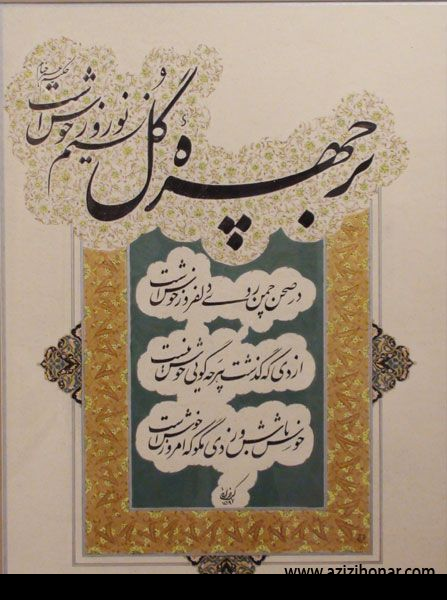 بر چهرهٔ گل نسیم نوروز خوش است
حکیم عمر خیام
در صحن چمن روی دلفروز خوش است
از دی که گذشت هر چه گویی خوش نیست
خوش باش و ز دی مگو که امروز خوش است
www.azizihonar.com